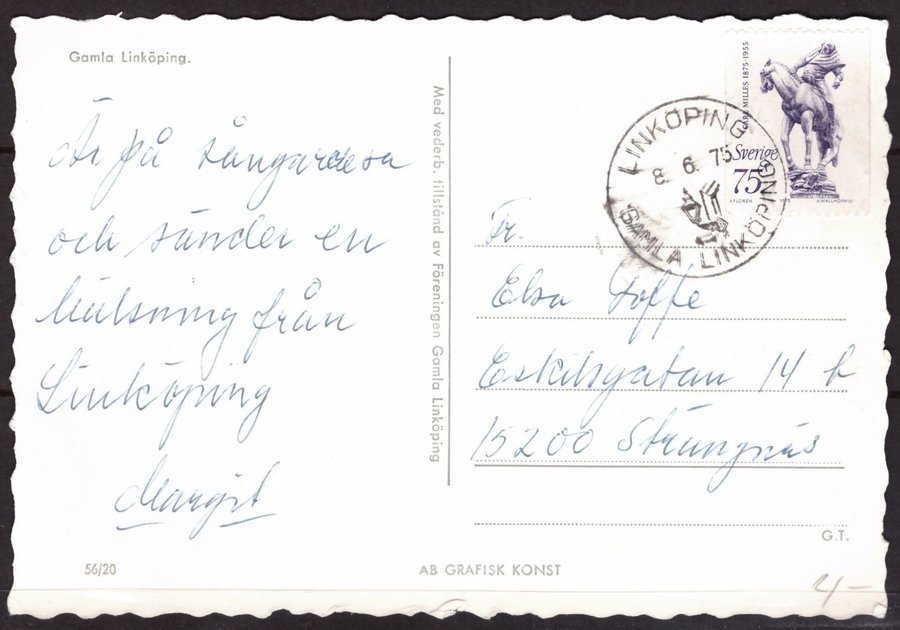 Gamla Linköping.
Är på sångardesa
och sänder en
hälsning från
Linköping
Margit
56/20
Med vederb. tillstånd av Föreningen Gamla Linköping
AB GRAFISK KONST
CARL MILLES 1875-1955
Sverige
75
LINKÖPING
8. 6. 75
GAMLA LINKÖPING
Fr.
Elsa Toffe
Eskilsgatan 14 b
15200 Strängnäs
G.T.
4-